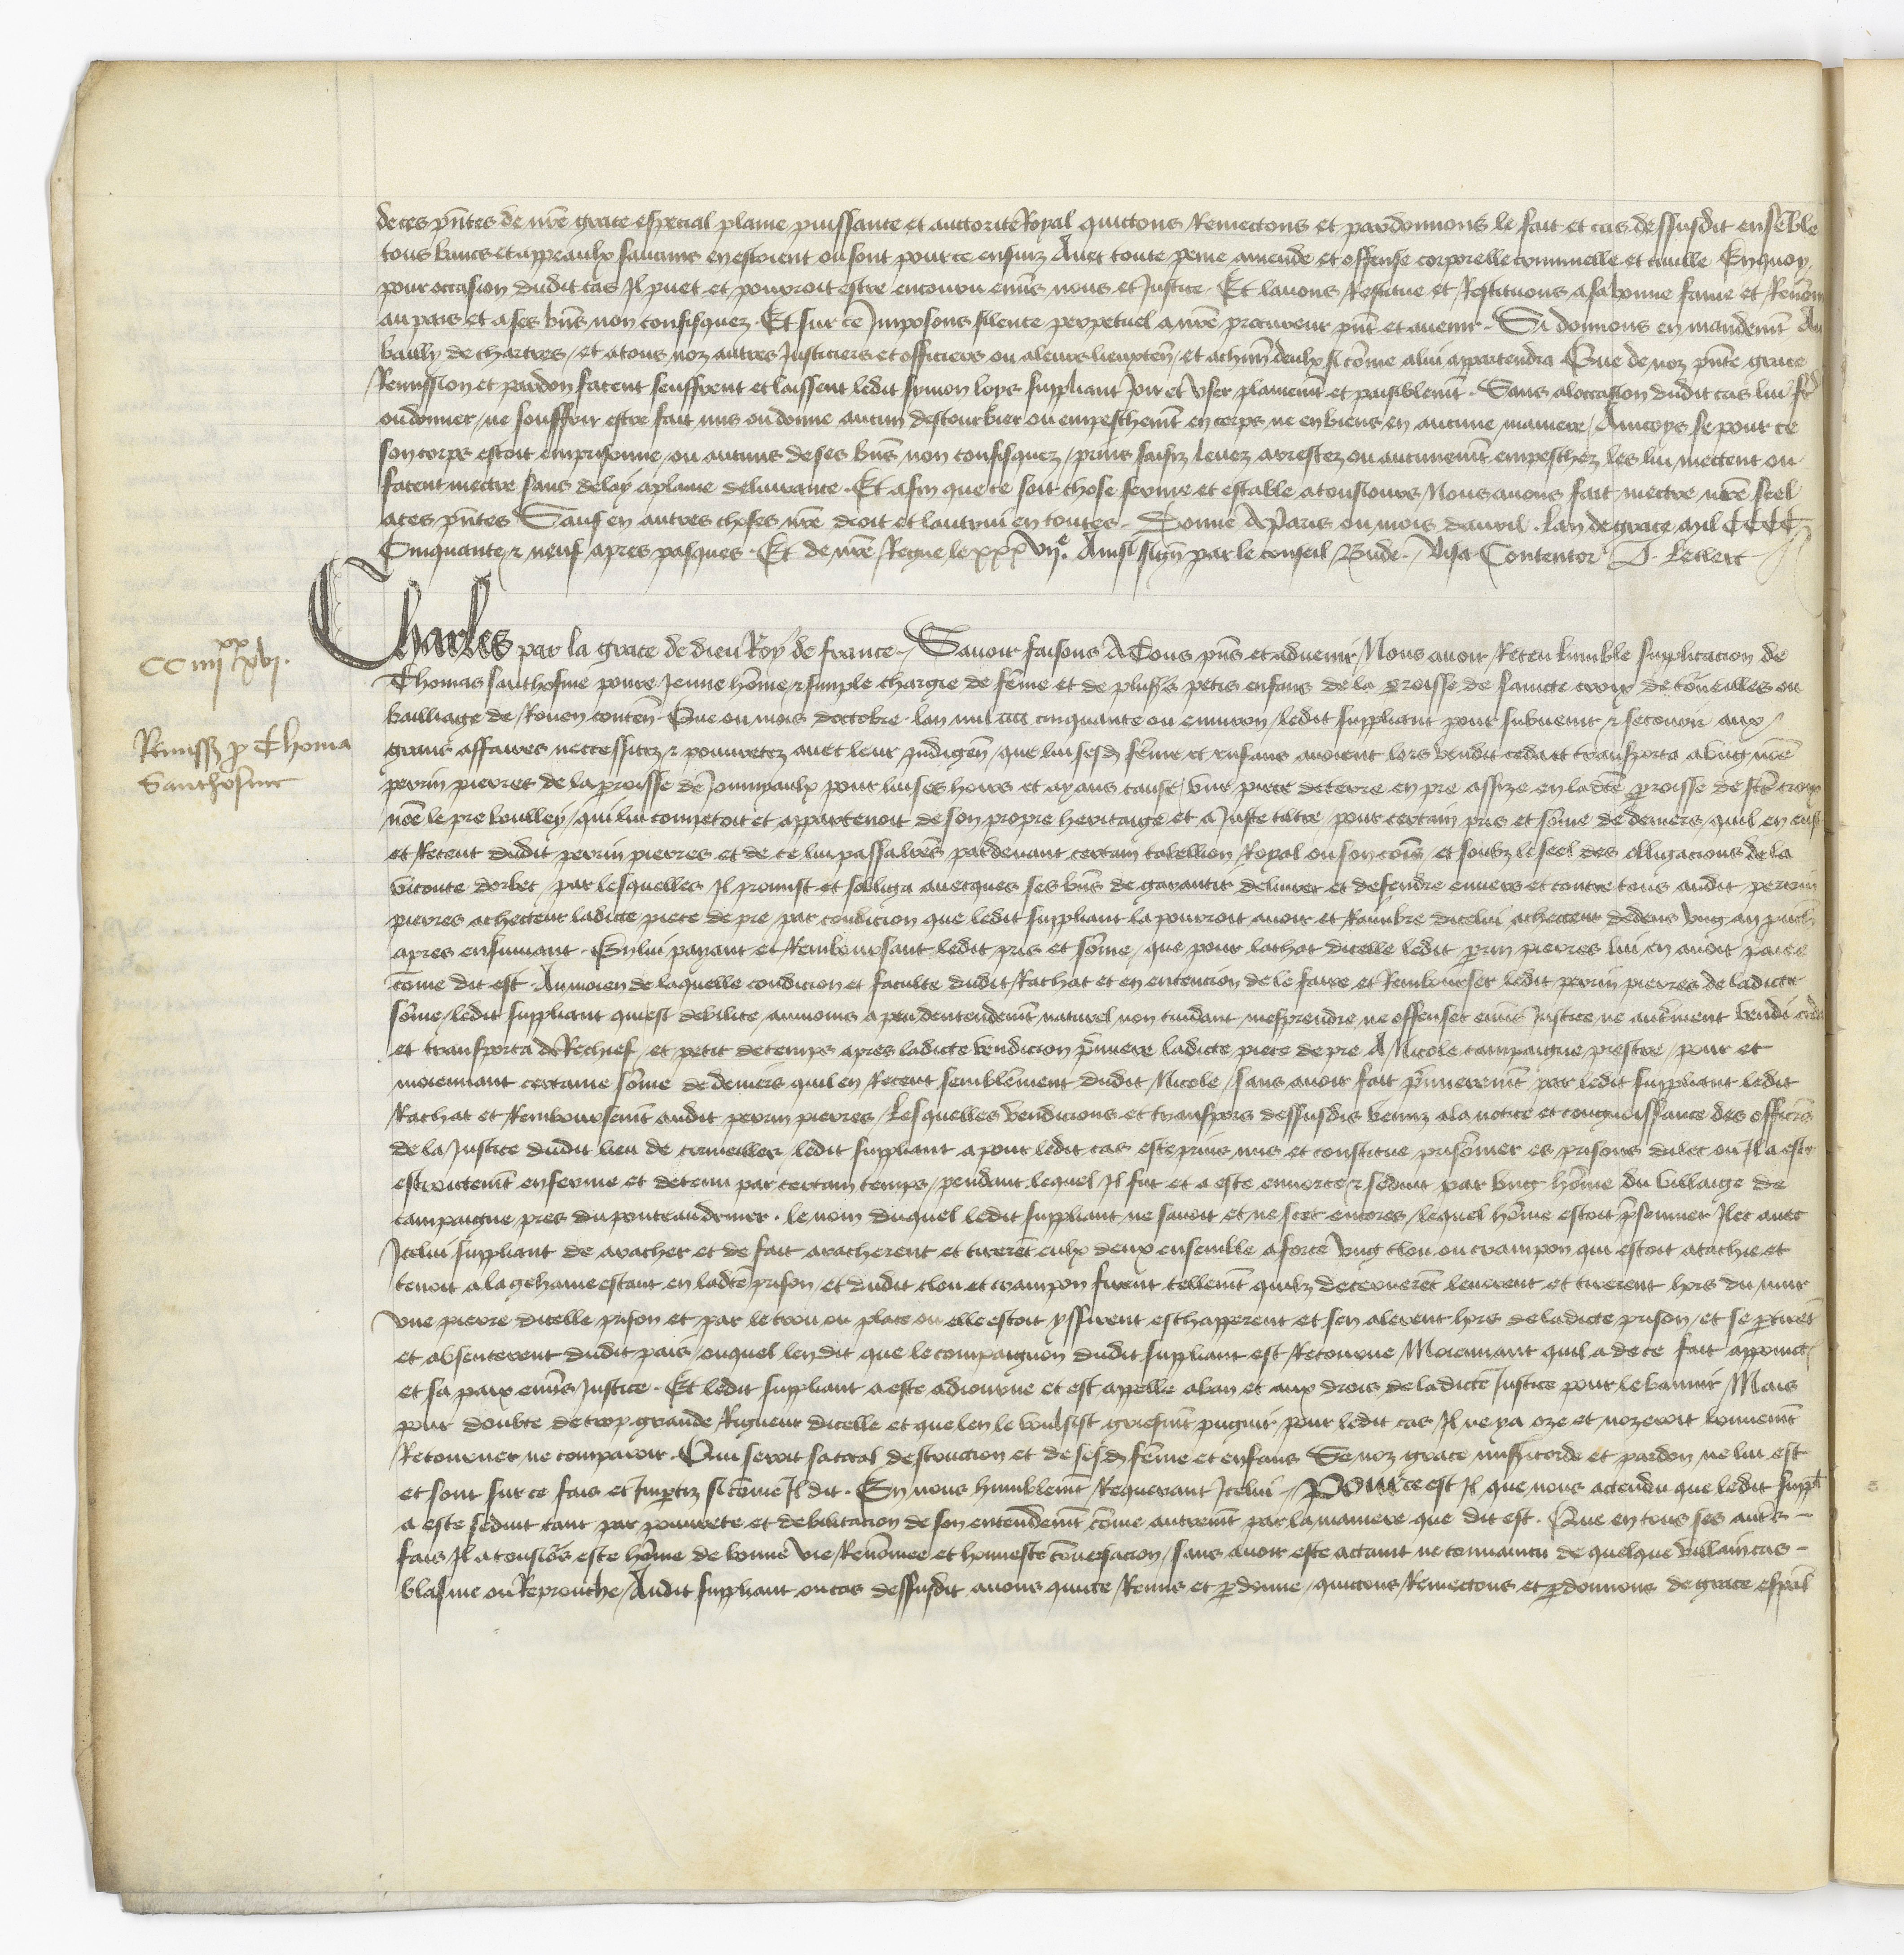 de ces pntes de nre grace especial plaine puissance et auctorite Royal quictons Remectons et pardonnons le fait et cas dessusdit ensemble
tous bancs et appeaulx saucuns en estoient ou sont pour ce ensuiz Avec toute peine amende et offense corporelle criminelle et ciuille En quoy
pour occasion dudit cas Il puet et pourroit estre encouru enuers nous et Justice . Et lauons Restitue et Restituons a sa bonne fame et Renom
au pais et a ses bns non confisquez . Et sur ce Imposons silence perpetuel a nre procureur pnt et auenir . Si donnons en mandemt Au
bailly de chartres / et a tous noz autres Justiciers et officiers ou a leurs lieuxten / et a chun deulx si come a lui appartendra Que de noz pnte grace
Remission et pardon facent seuffrent et laissent ledit symon loys suppliant Joir et Vser plainemt et paisiblemt . Sans aloccasion dudit cas lui
ou donner / ne souffrir estre fait mis ou donne aucun destourbier ou empeschemt en corps ne en biens en aucune maniere / Aincoys se pour ce
son corps estoit emprisonne / ou aucuns de ses bns non confisquez / prins saisiz leuez arrestez ou aucunemt empeschez les lui mectent ou
facent mectre sans delay a plaine deliurance . Et afin que ce soit chose ferme et estable a tousiours / Nous auons fait mectre nre scel
a ces pntes Sauf en autres choses nre droit et lautrui en toutes . Donne A Paris ou mois dauril . Lan de grace mil CCCC
Cinquante & neuf apres pasques . Et de nre Regne le xxxvije . Ainsi sign par le conseil / Bude . / Visa Contentor
Charles par la grace de dieu Roy de france . / Sauoir faisons A Tous pns et aduenir / Nous auoir / Receu lumble supplicacion de
CC iiijxx xvj .
Thomas santhosme poure Jeune home / & simple chargie de feme et de plusrs petis enfans de la proisse de saincte croix de corneilles ou
bailliage de / Rouen conten . Que ou mois doctobre . lan mil cccc cinquante ou enuiron / ledit suppliant pour subuenir & secourir aux /
Remiss p Thoma
grans affaires neccessitez & pouuretez auec leur jndigen / que lui sesd feme et enfans auoient lors vendit ceda et transporta a vng nome
Santhosme
perrin pierres de la proisse de pour lui ses hoirs et ayans cause / vne piece de terre en pre assize en ladte proisse de ste croix
nome le pre boulley / qui lui competoit et appartenoit de son propre heritaige et a Juste tiltre / pour certain pris et some de deniers / quil en eust
et Receut dudit perrin pierres et de ce lui passa lres pardeuant certain tabellion / Royal ou son comis / et soubz le seel des obligacions de la
viconte dorbec / par lesquelles Il promist et sobliga auecques ses bns de garantir deliurer et defendre enuers et contre tous audit perrin
pierres achecteur ladicte piece de pre / par condicion que ledit suppliant la pourroit auoir et Raimbre dicelui achecteur dedens vng an
apres ensuiuant . En lui paiant et Remboursant ledit pris et some / que pour lachat dicelle ledit prin pierres lui en auoit paiee
come dit est . Au moien de laquelle condicion et faculte dudit / Rachat et en entencion de le faire et Rembourser ledit perrin pierres de ladicte
some / ledit suppliant qui est debilite / aumoins a peu dentendemt naturel non cuidant mesprendre ne offenser enuers Justice ne autrement vendi ceda
et transporta de Rechief / et petit de temps apres ladicte vendicion pmiere ladicte piece de pre A / Nicole campaigne prestre / pour et
moiennant certaine some de deniers quil en / Receut semblement dudit Nicole / sans auoir fait pmieremt par ledit suppliant ledit
Rachat et Remboursemt audit perrin pierres / Lesquelles vendicions et transpors dessusdis venuz a la notice et congnoissance des officrs
de la Justice dudit lieu de corneilles ledit suppliant a pour ledit cas este prins mis et constitue prisonier es prisons dilec ou Il a este
estroictemt enferme et detenu par certain temps / pendant lequel Il fut et a este ennorte & seduit par vng home du villaige de
campaigne / pres du ponteaudemer . le nom duquel ledit suppliant ne sauoit et ne scet encores / lequel home estoit prisonnier Ilec auec
Icelui suppliant de aracher et de fait aracherent et tirerent eulx deux ensemble a force vng clou ou crampon qui estoit atachie et
tenoit a la gehaine estant en ladte prison / et dudit clou et crampon firent tellemt quilz leuerent et tirerent hors du mur
vne pierre dicelle prison et par le trou ou place ou elle estoit yssirent eschapperent et sen alerent hors de ladicte prison / et se ptirent
et absenterent dudit pais / ouquel len dit que le compaignon dudit suppliant est / Retourne / Moiennant quil a de ce fait appoinct
et sa paix enuers / Justice . Et ledit suppliant a este adiourne et est appelle a ban et aux drois de ladicte Justice pour le bannir / Mais
pour doubte de trop grande Rigueur dicelle et que len le voulsist griefmt pugnir pour ledit cas / Il ne y a oze et nozeroit bonnemt
Retourner ne comparoir . Qui seroit sa total destruction et de sesd feme et enfans Se noz grace misericorde et pardon ne lui est
et sont sur ce fais et Imptiz si come Il dit . En nous humblemt / Requerant Icelui . / Pource est Il que nous actendu que ledit suppl
a este seduit tant par pouurete et debilitacion de son entendemt come autremt par la maniere que dit est . Que en tous ses autrs
fais / Il a tousiors este home de bonne vie / Renomee et honneste conuersacion / sans auoir este actaint ne conuaincu de quelque villain cas
blasme ou Reprouche / Audit suppliant ou cas dessusdit auons quicte / Remis et pdonne / quictons / Remectons et pdonnons de grace espal